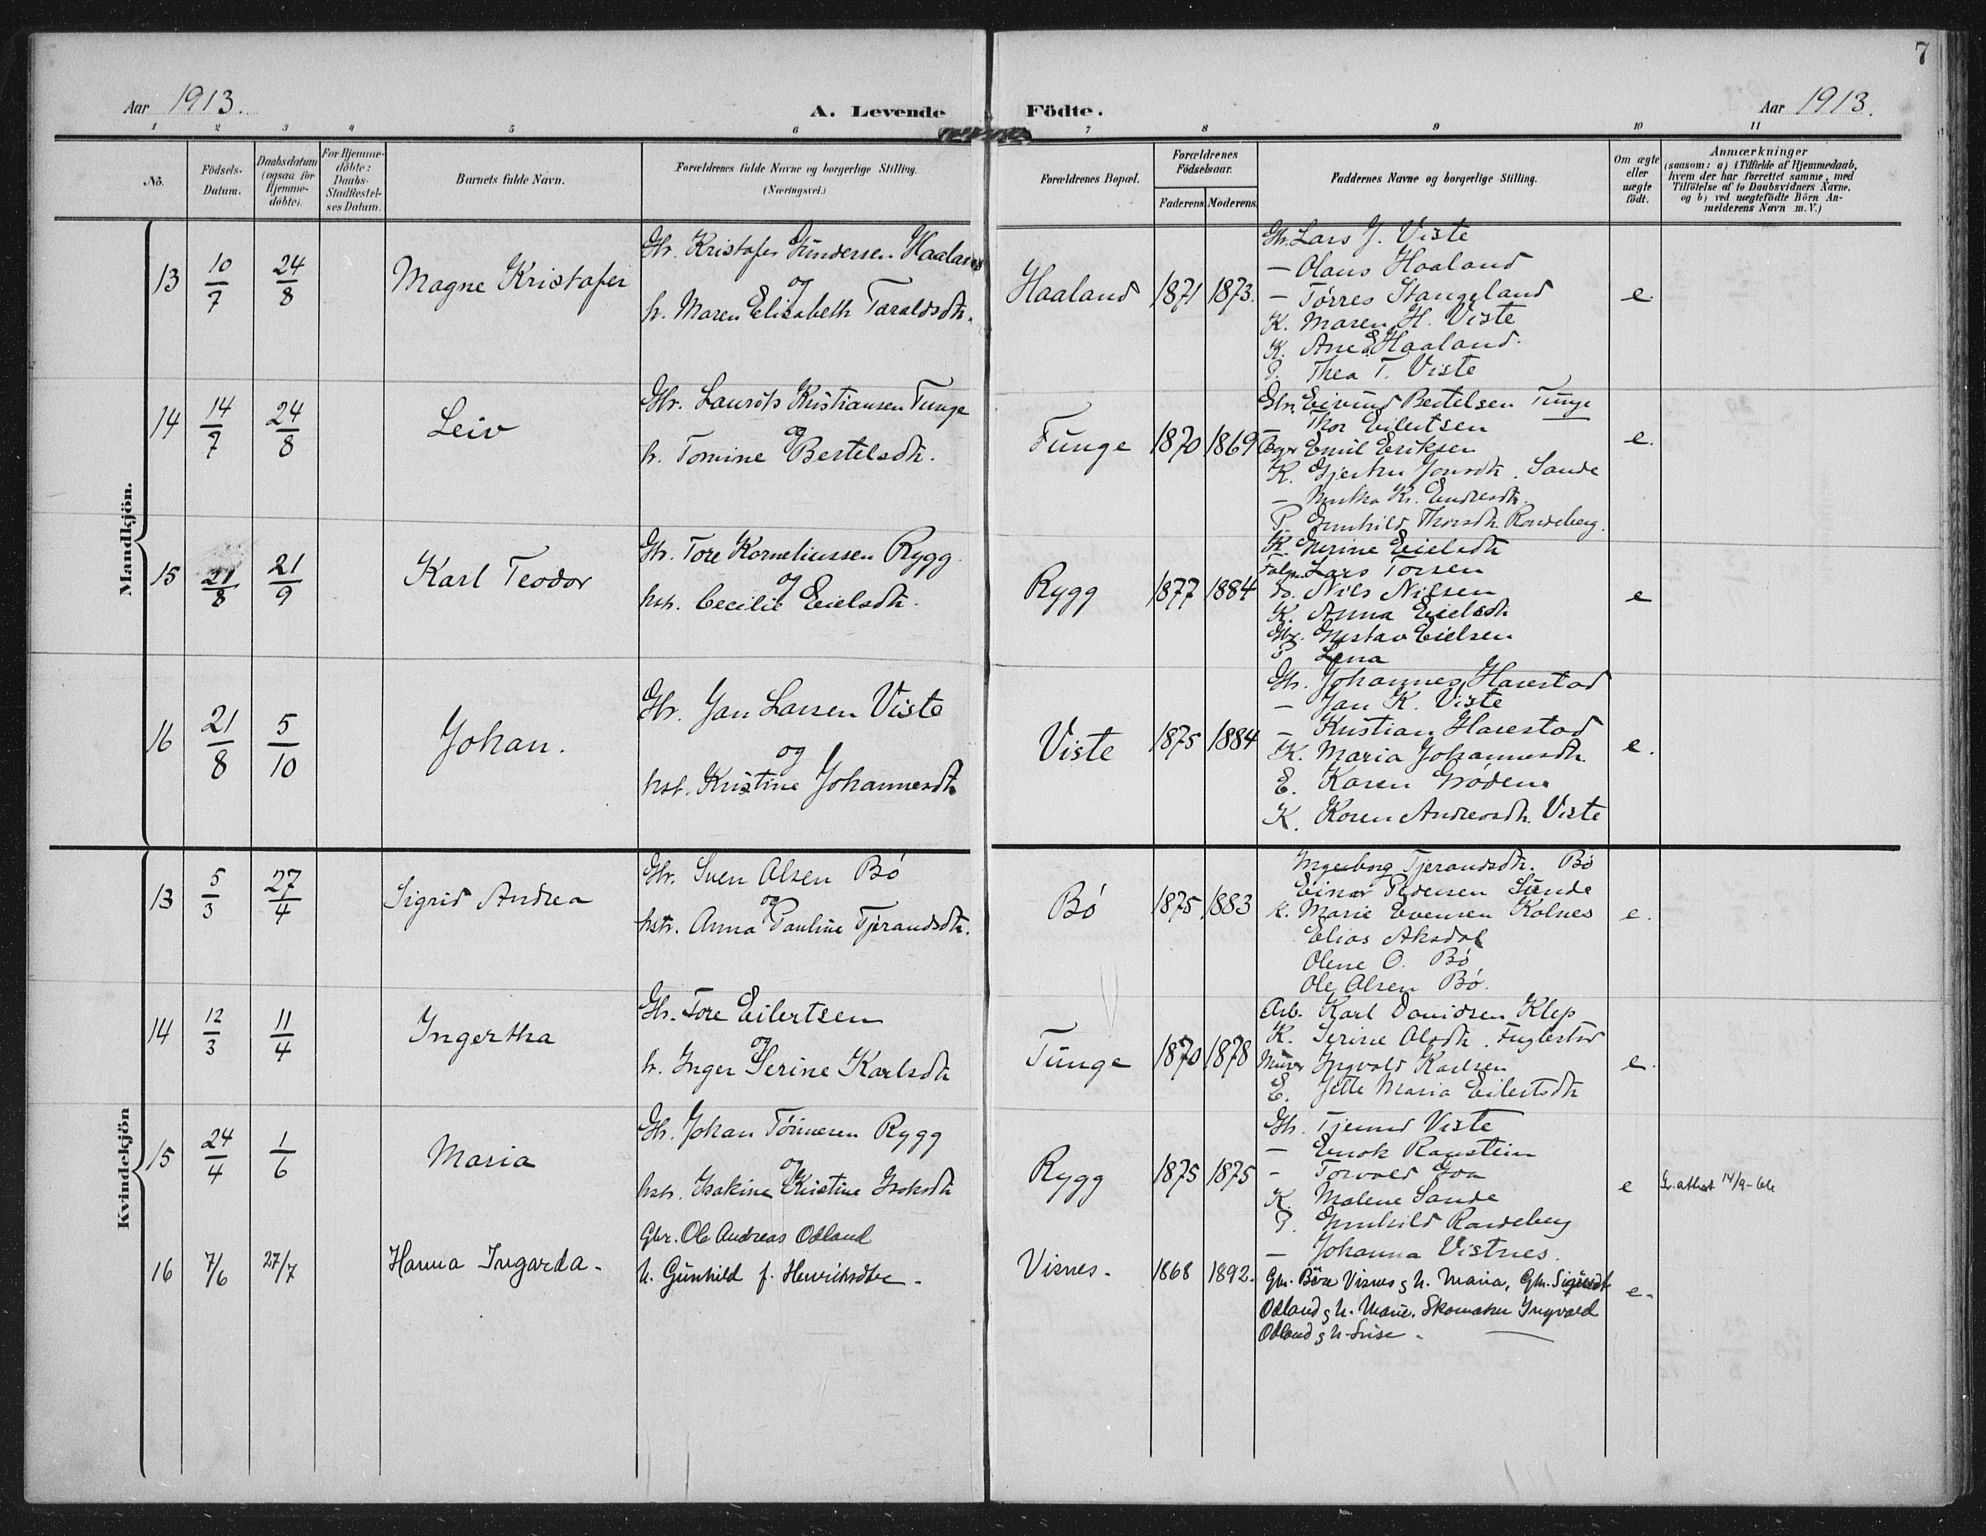 7
Aar 1913.
A. Levende Födte.
Aar 1913.
1 2 3 4 5 6 7 8 9 10 11
No.
Födsels-Datum.
Daabsdatum (ogsaa for Hjemme-döbte).
For Hjemme-döbte: Daabs-Stadfæstel-ses Datum.
Barnets fulde Navn.
Forældrenes fulde Navne og borgerlige Stilling.
(Næringsvei.)
Forældrenes Bopæl.
Forældrenes Födselsaar.
Faderens Moderens
Faddernes Navne og borgerlige Stilling.
Om ægte eller uægte födt.
Anmærkninger
(saasom: a) i Tilfælde af Hjemmedaab,
hvem der har forrettet samme, med
Tilföielse af to Daabsvidners Navne,
og b) ved uægtefödte Börn An-
melderens Navn m. V.)
Mandkjön.
13 10/7 24/8 Magne Kristofer
Gbr. Kristofer Gundersen Haaland
og
h. Maren Elisabeth Taraldsdtr.
Haaland 1871 1873.
Gbr. Lars J. Viste
— Olaus Haaland
— Tørres Stangeland
K. Maren H. Viste
K. Ane Haaland.
P. Thea T. Viste
e.
14 14/7 24/8 Leiv
Gbr. Laurits Kristiansen Tunge
og
h. Tomine Bertelsdtr.
Tunge 1870 1869
Gbr. Eivind Bertelsen Tunge
— Thor Eilertsen
Emil Eriksen
K. Gjertru Jonsdtr. Sande
— Kr. Endresdtr.
P. Gunhild Thorsdtr. Randeberg.
e.
15 21/8 21/9 Karl Teodor
Gbr. Tore Korneliussen Rygg
og
hstr. Cecilie Eielsdtr.
Rygg 1877 1884
K. Serine Eielsdtr
Lars Torsen
Nils Nilsen
K. Anna Eielsdtr
Gbr. Gustav Eielsen
P. Lena
e
16 21/8 5/10 Johan.
Gbr. Jan Larsen Viste
og
hst. Kristine Johannesdtr
Viste 1875 1884
Gbr. Johannes Harestad
— Jan K. Viste
— Kristian Harestad
K. Maria Johannesdtr.
E. Karen Grødem
K. Karen Andreasdtr. Viste
e.
Kvindekjön
13 5/3 27/4 Sigrid Andrea
Gbr. Sven Olsen Bö
og
hstr. Anna Pauline Tjerandsdtr.
Bö 1875 1883
Ingeborg Tjerandsdtr. Bö
Einar Pedersen Sunde
K. Marie Evensen Kolnes
Elias Aksdal
Olene O. Bö
Ole Olsen Bö.
e.
14 12/3 11/4 Ingertha
Gbr. Tore Eilertsen
og
h. Inger Serine Karlsdtr
Tunge 1870 1878
Arb. Karl Danidsen Klep
K. Serine Olsdtr. Fuglestad
Murer Ingvald Karlsen
E. Jette Maria Eilertsdtr
e.
15 24/4 1/6 Maria
Gbr. Johan Tönnesen Rygg
og
hstr. Isakine Kristine Isaksdtr
Rygg 1875 1875
Gbr. Tjerand Viste
— Enok Raustein
— Torvald Goa
K. Malene Sande
P. Gunhild Randeberg
— Johanna Vistnes.
e
attest 14/9-66
16 7/6 27/7 Hanna Ingarda.
Gbr. Ole Andreas Ødland
h. Gunhild f. Henriksdtr.
Visnes. 1868 1892.
Gbr. Böre Visnes g h. Maria, Gbr. Sigurd
Ødland g h. Marie. Skomaker Ingvald
Ødland g h.
e.